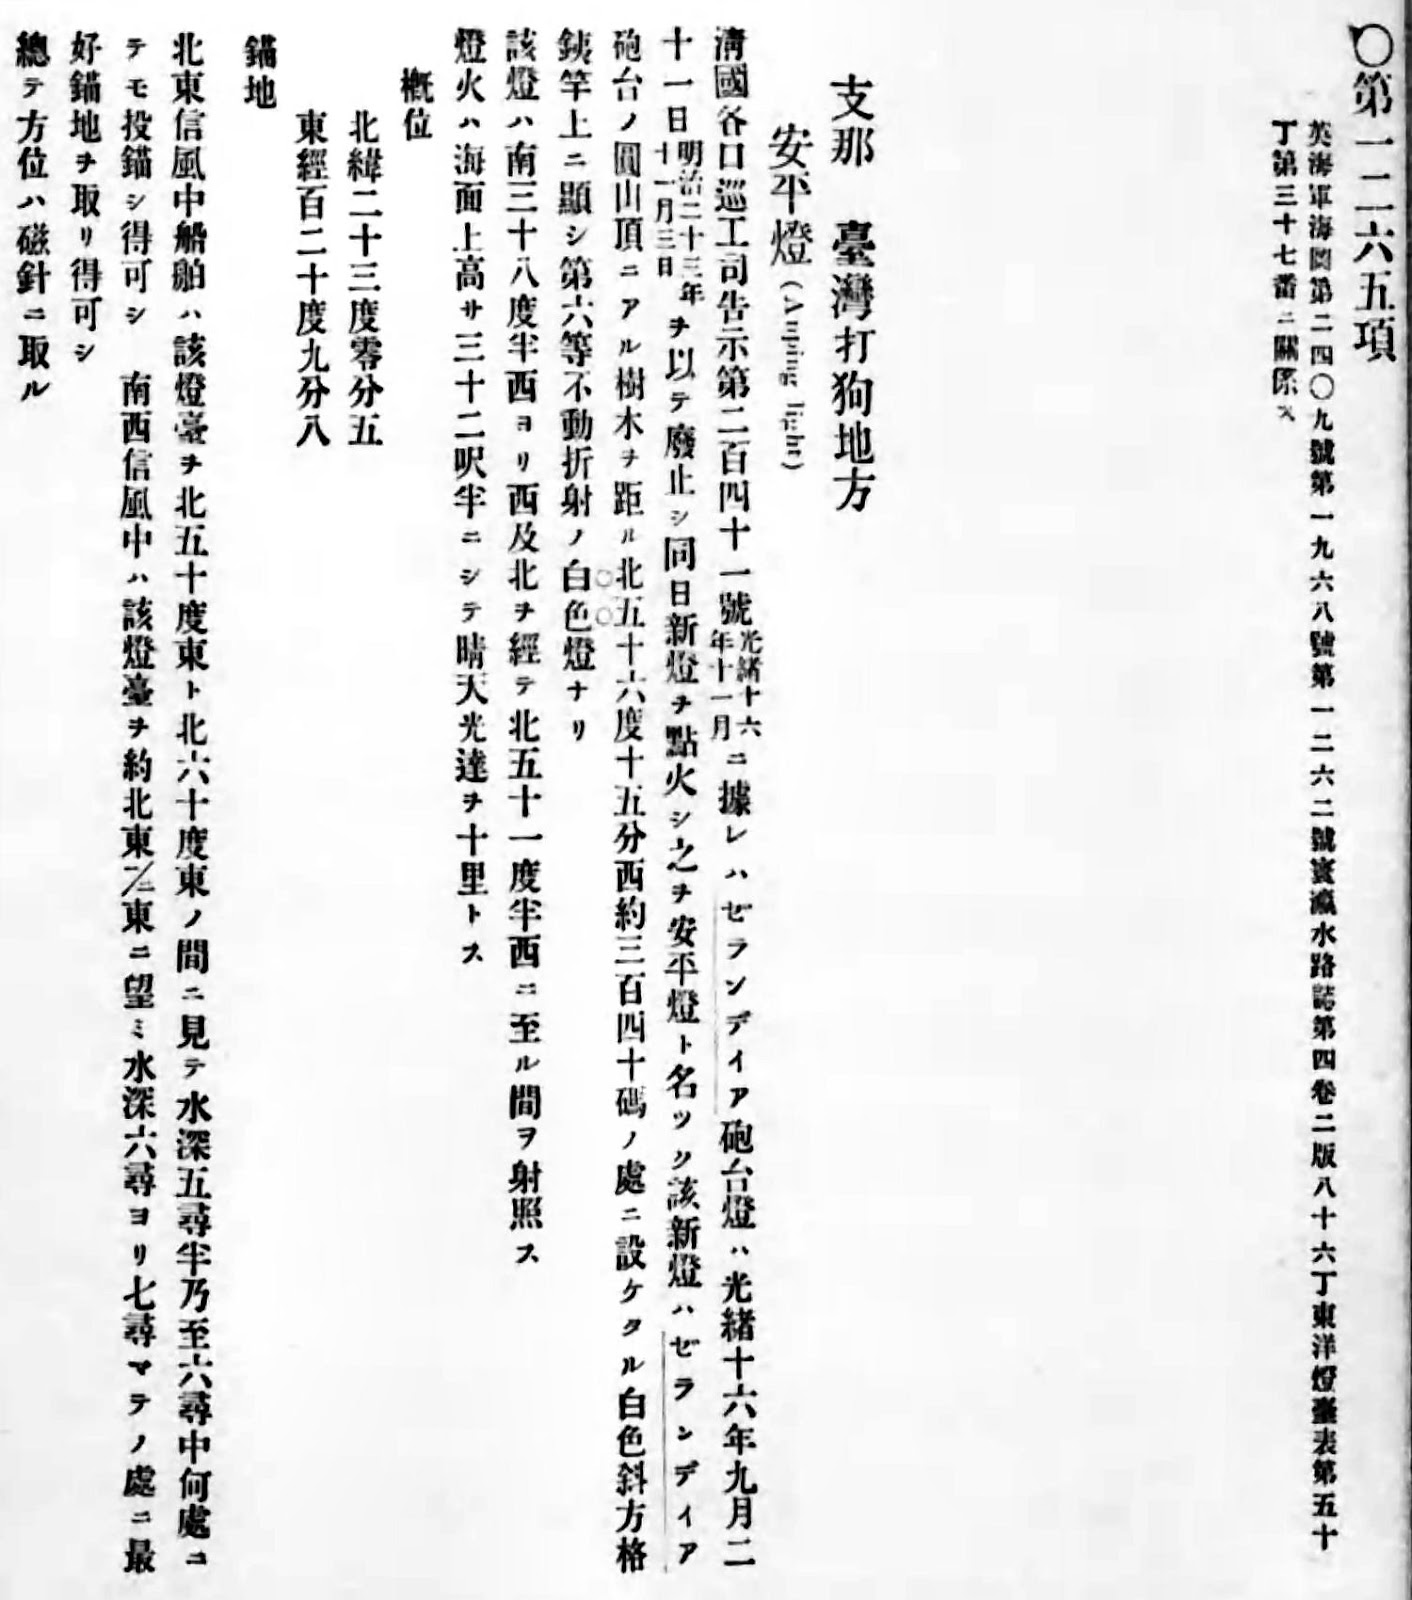 〇第一二六五項
英海軍海圖第二四〇九號第一九六八號第一二六二號寰瀛水路誌第四卷二版八十六丁東洋燈臺表第五十
丁第三十七番ニ關係ス
支那　臺灣打狗地方
安平燈（Anping light）
淸國各口巡工司告示第二百四十一號光緒十六年十一月ニ據レハゼランデイア砲台燈ハ光緒十六年九月二
十一日明治二十三年十一月三日ヲ以テ廢止シ同日新燈ヲ點火シ之ヲ安平燈ト名ツク該新燈ハゼランデイア
砲台ノ圓山頂ニアル樹木ヲ距ル北五十六度十五分西約三百四十碼ノ處ニ設ケタル白色斜方格
銕竿上ニ顯シ第六等不動折射ノ白色燈ナリ
該燈ハ南三十八度半西ヨリ西及北ヲ經テ北五十一度半西ニ至ル間ヲ射照ス
燈火ハ海面上高サ三十二呎半ニシテ晴天光達ヲ十里トス
槪位
北緯二十三度零分五
東經百二十度九分八
錨地
北東信風中船舶ハ該燈臺ヲ北五十度東ト北六十度東ノ間ニ見テ水深五尋半乃至六尋中何處ニ
テモ投錨シ得可シ　南西信風中ハ該燈臺ヲ約北東/二東ニ望ミ水深六尋ヨリ七尋マテノ處ニ最
好錨地ヲ取リ得可シ
總テ方位ハ磁針ニ取ル